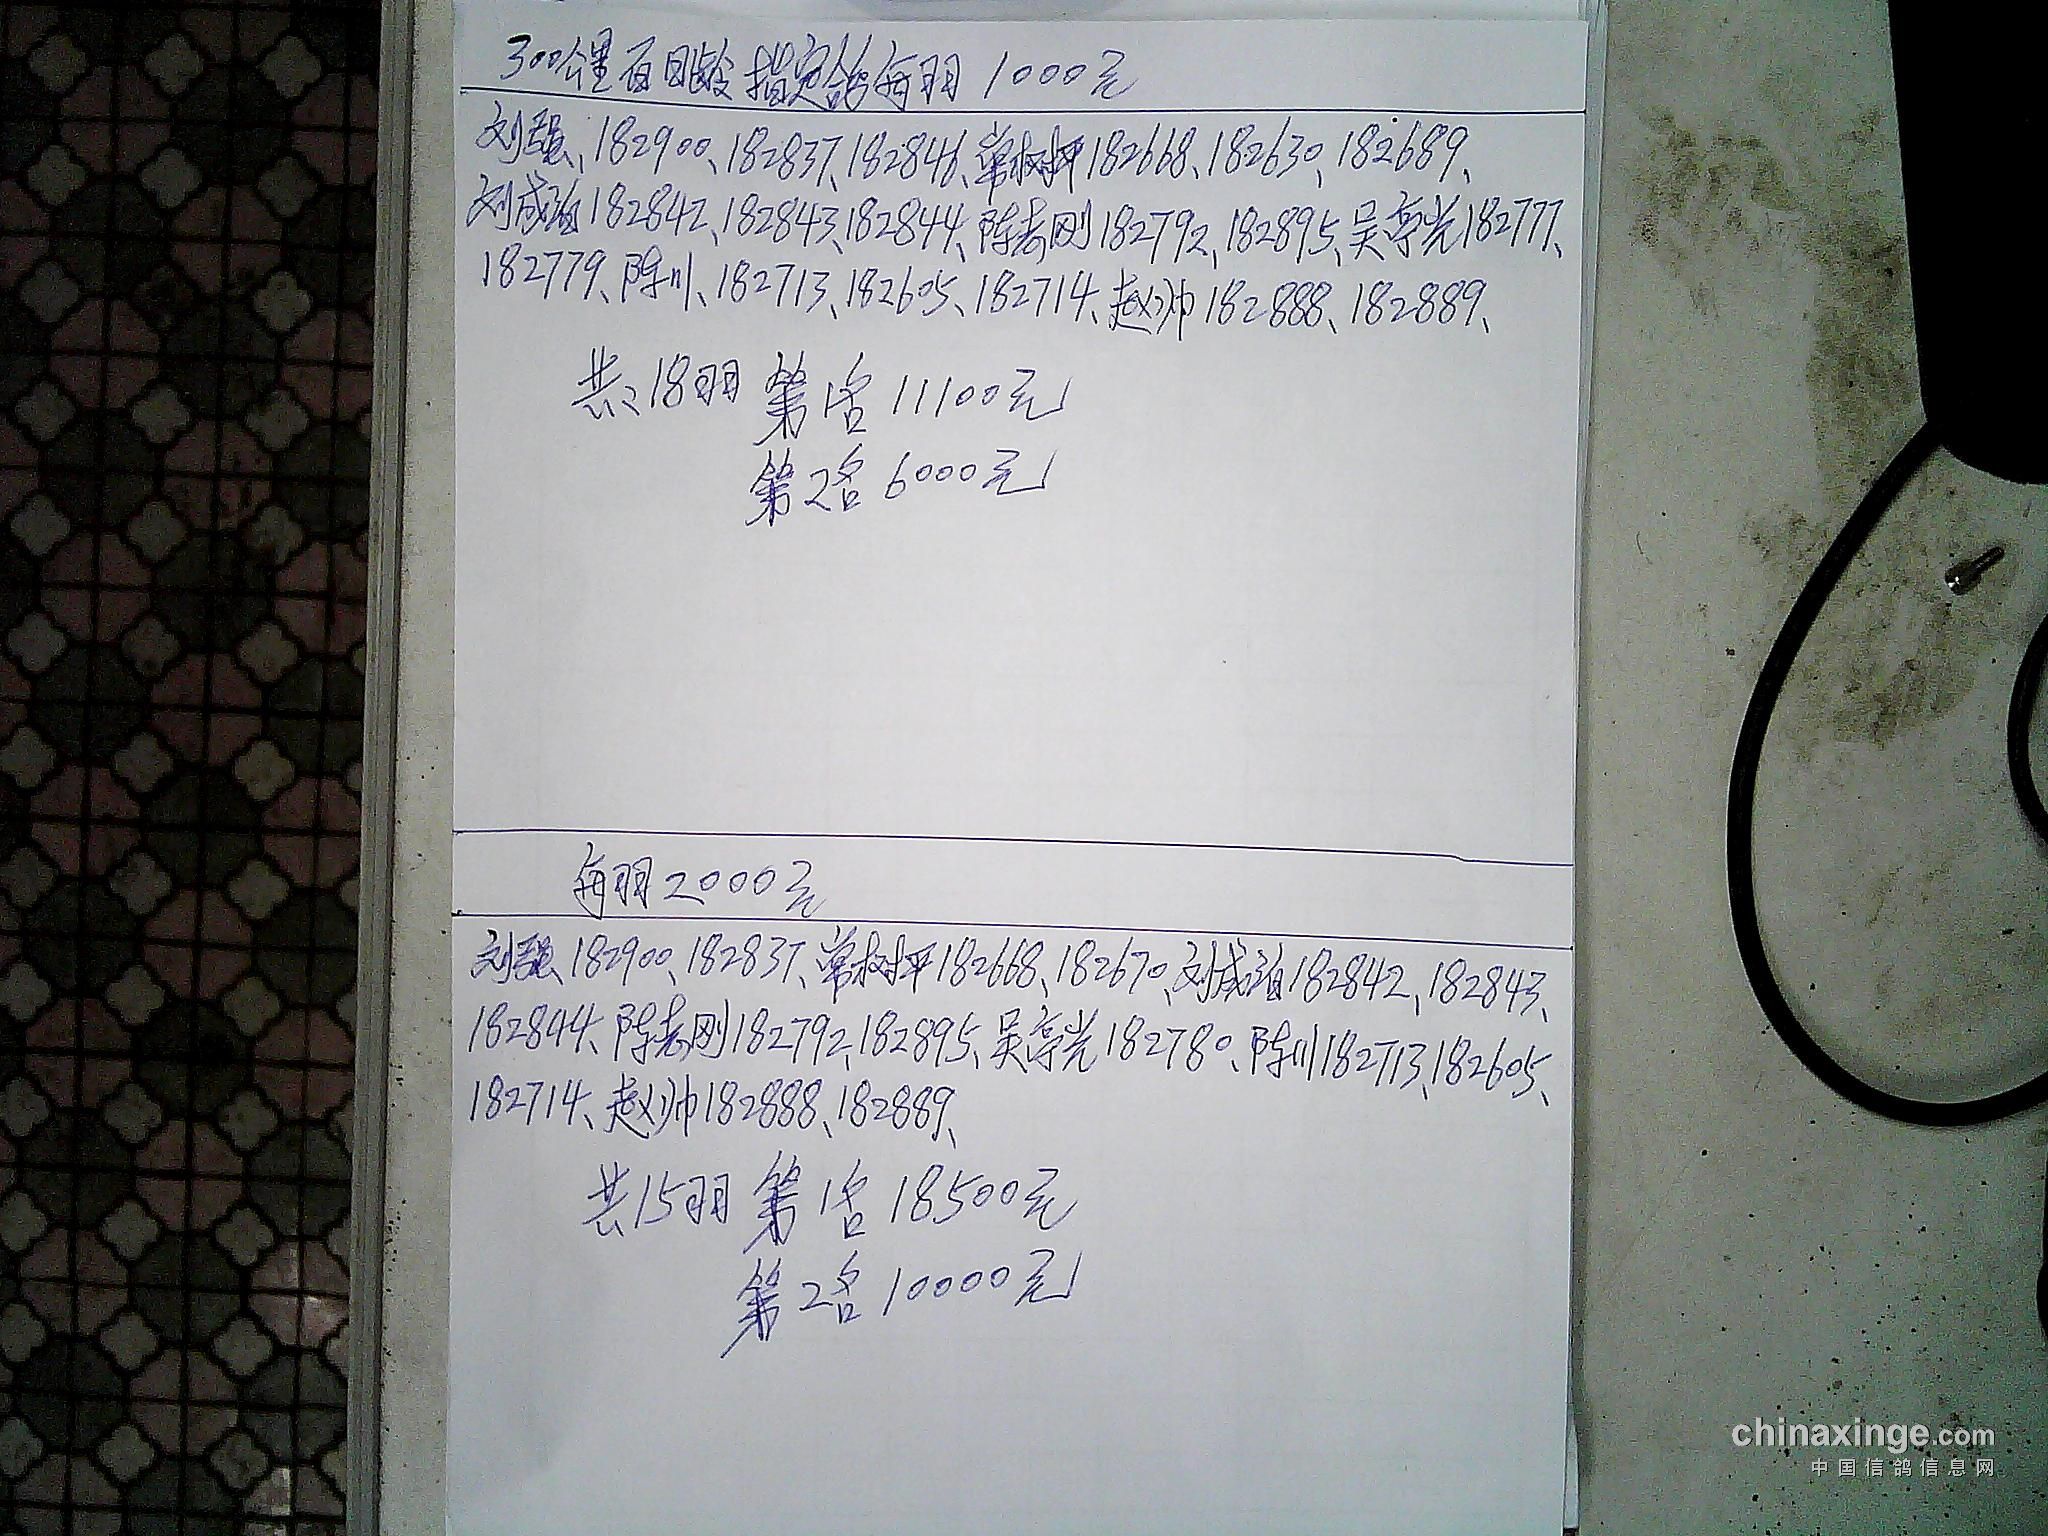 300公里百日龄指定鸽每羽1000元
刘强、182900、182837、182846、常树坪182668、182630、182689、
刘成海182842、182843、182844、陈志刚182792、182895、吴亭光182777、
182779、陈川、182713、182605、182714、赵帅182888、182889、
共18羽 第1名 11100元
第2名 6000元
每羽2000元
刘强、182900、182837、常树坪182668、182670、刘成海182842、182843、
182844、陈志刚182792、182895、吴亭光182780、陈川182713、182605、
182714、赵帅182888、182889、
共15羽 第1名 18500元
第2名 10000元
chinaxinge.com
中国信鸽信息网